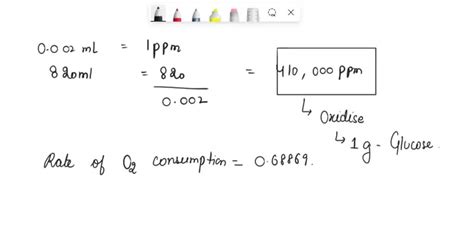 0.002 mL = 1ppm
820ml = 820/0.002 = 410,000 ppm
↳ Oxidise
↳ 1g - Glucose.
Rate of O2 consumption = 0.68869.